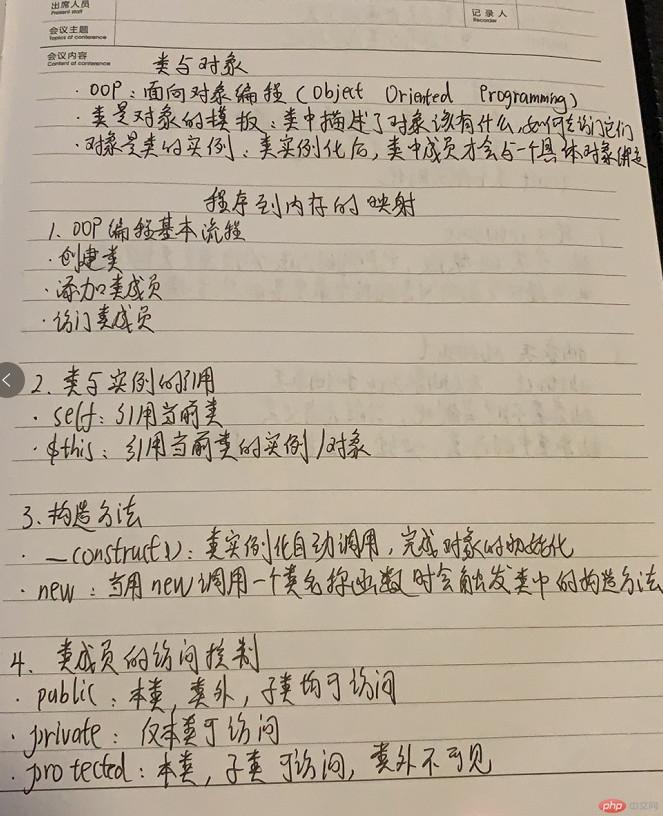 出席人员
Present staff
记录人
Recorder
会议主题
Topics of conference
会议内容
Content of conference
类与对象
· OOP：面向对象编程（Object Oriented Programming）
· 类是对象的模板：类中描述了对象该有什么，如何去访问它们
· 对象是类的实例：类实例化后，类中成员才会与一个具体对象绑定
程序到内存的映射
1. OOP编程基本流程
· 创建类
· 添加类成员
· 访问类成员
2. 类与实例的引用
· self：引用当前类
· $this：引用当前类的实例/对象
3. 构造方法
· __construct()：类实例化自动调用，完成对象的初始化
· new：当用new调用一个类名称函数时会触发类中的构造方法
4. 类成员的访问控制
· public：本类，类外，子类均可访问
· private：仅本类可访问
· protected：本类，子类可访问，类外不可见
php 中文网